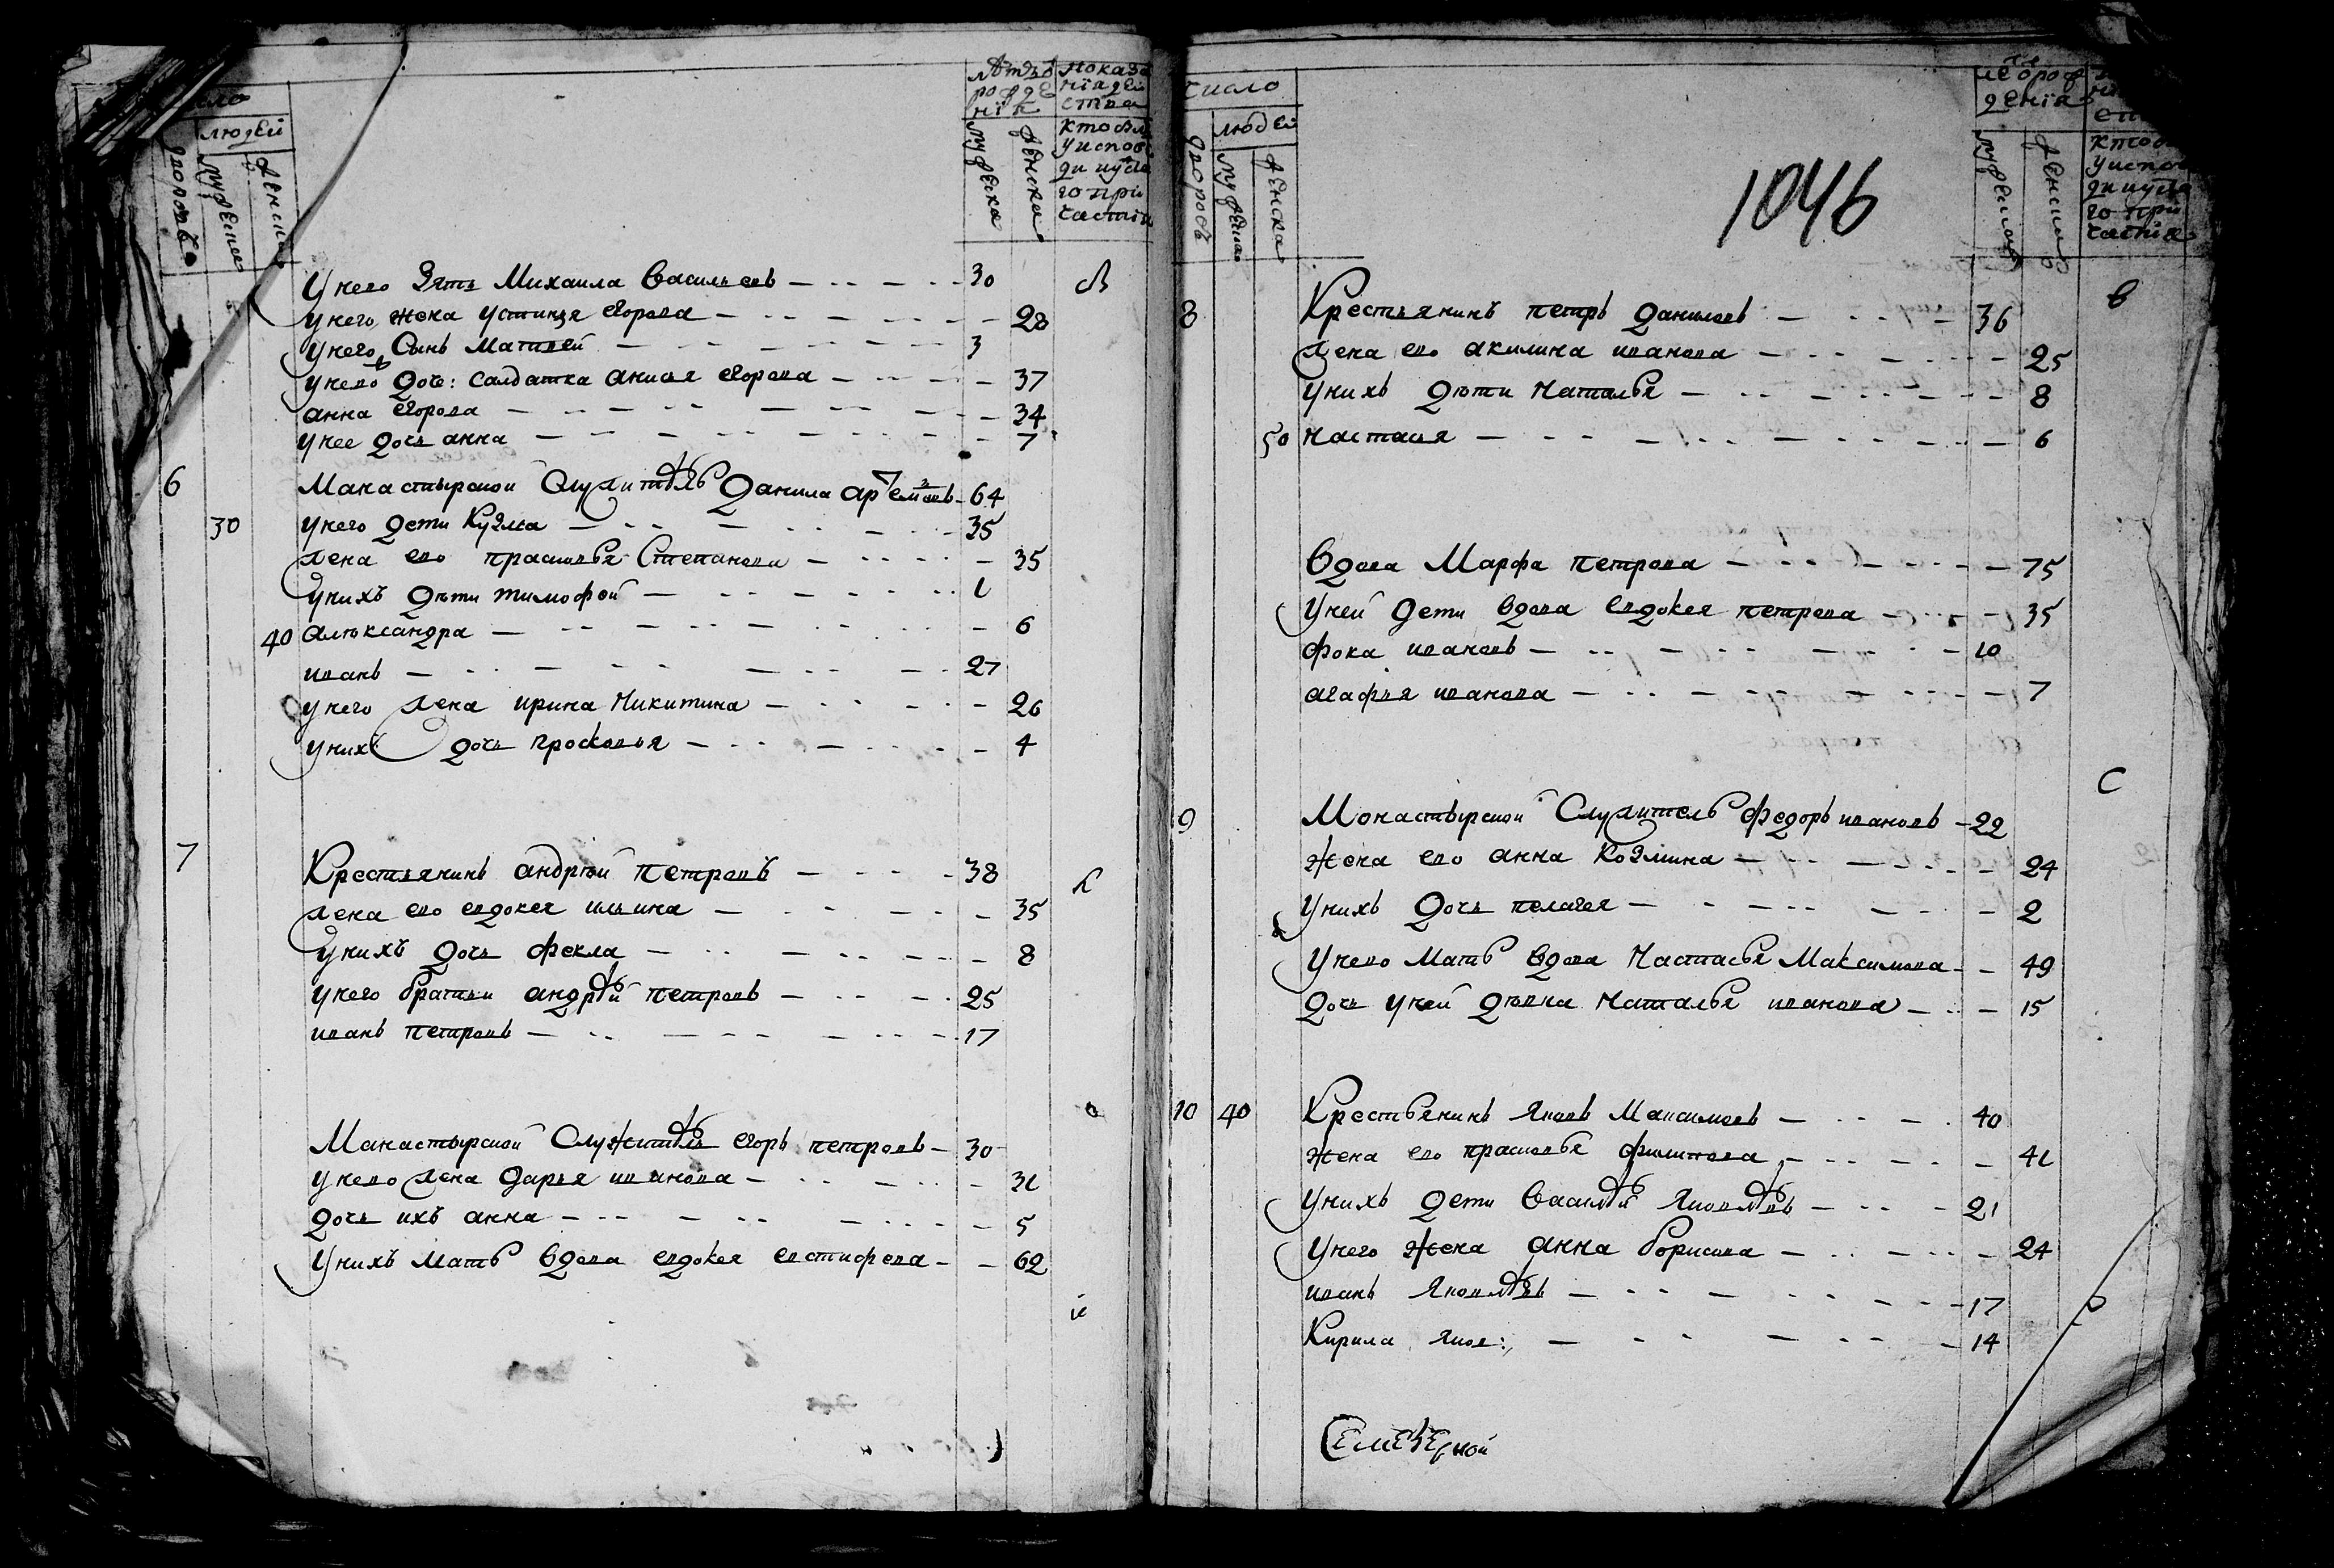 число
людей
дворовъ
мужеска
женска
лѣтъ
рожде
нїя
мужеска
женска
показа
нїя дей
ства
кто был
у испов
ди и свѧ
го при
частїя
У него Зять Михаила Васильевъ — 30
у него жена Устинья егорова — 28
у него Сынъ Матвей — 3
у него доче: салдатка анисья егорова — 37
анна егорова — 34
у нее дочь анна — 7
6 Манастырской Служитель Данила артемьевъ — 64
30 у него дети Кузма — 35
жена ево прасковья Степанова — 35
у нихъ дѣти тимофей — 1
40 алѣксандра — 6
иванъ — 27
у него жена ирина Никитина — 26
у нихъ дочь просковья — 4
7 Крестьянинъ андрѣй петровъ — 38
жена ево евдокея ильина — 35
у нихъ дочь фекла — 8
у него братьи андрѣй петровъ — 25
иванъ петровъ — 17
Манастырской Служитель егоръ петровъ — 30
у него жена дарья иванова — 31
дочь ихъ анна — 5
У нихъ мать вдова евдокея евстифева — 62
число
людей
дворовъ
мужеска
женска
1046
лѣ
рож
денїя
мужеска
женска
кто б
у испо
ди и свѧ
го при
частїя
8 Крестьянинъ петръ Даниловъ — 36
жена ево акилина иванова — 25
у нихъ дѣти Наталья — 8
50 Настасья — 6
Вдова Марфа петрова — 75
у ней дети вдова евдокея петрова — 35
фока ивановъ — 10
агафья иванова — 7
9 Монастырской Служитель федоръ ивановъ — 22
жена ево анна Козмина — 24
у нихъ дочь пелагея — 2
У него мать вдова Настасья Максимова — 49
дочь у ней дѣвка Наталья иванова — 15
10 40 Крестьянинъ Яковъ Максимовъ — 40
жена ево прасковья филипова — 41
у нихъ дети Василей Яковлевъ — 21
у него жена анна борисова — 24
иванъ Яковлевъ — 17
Кирила яков: — 14